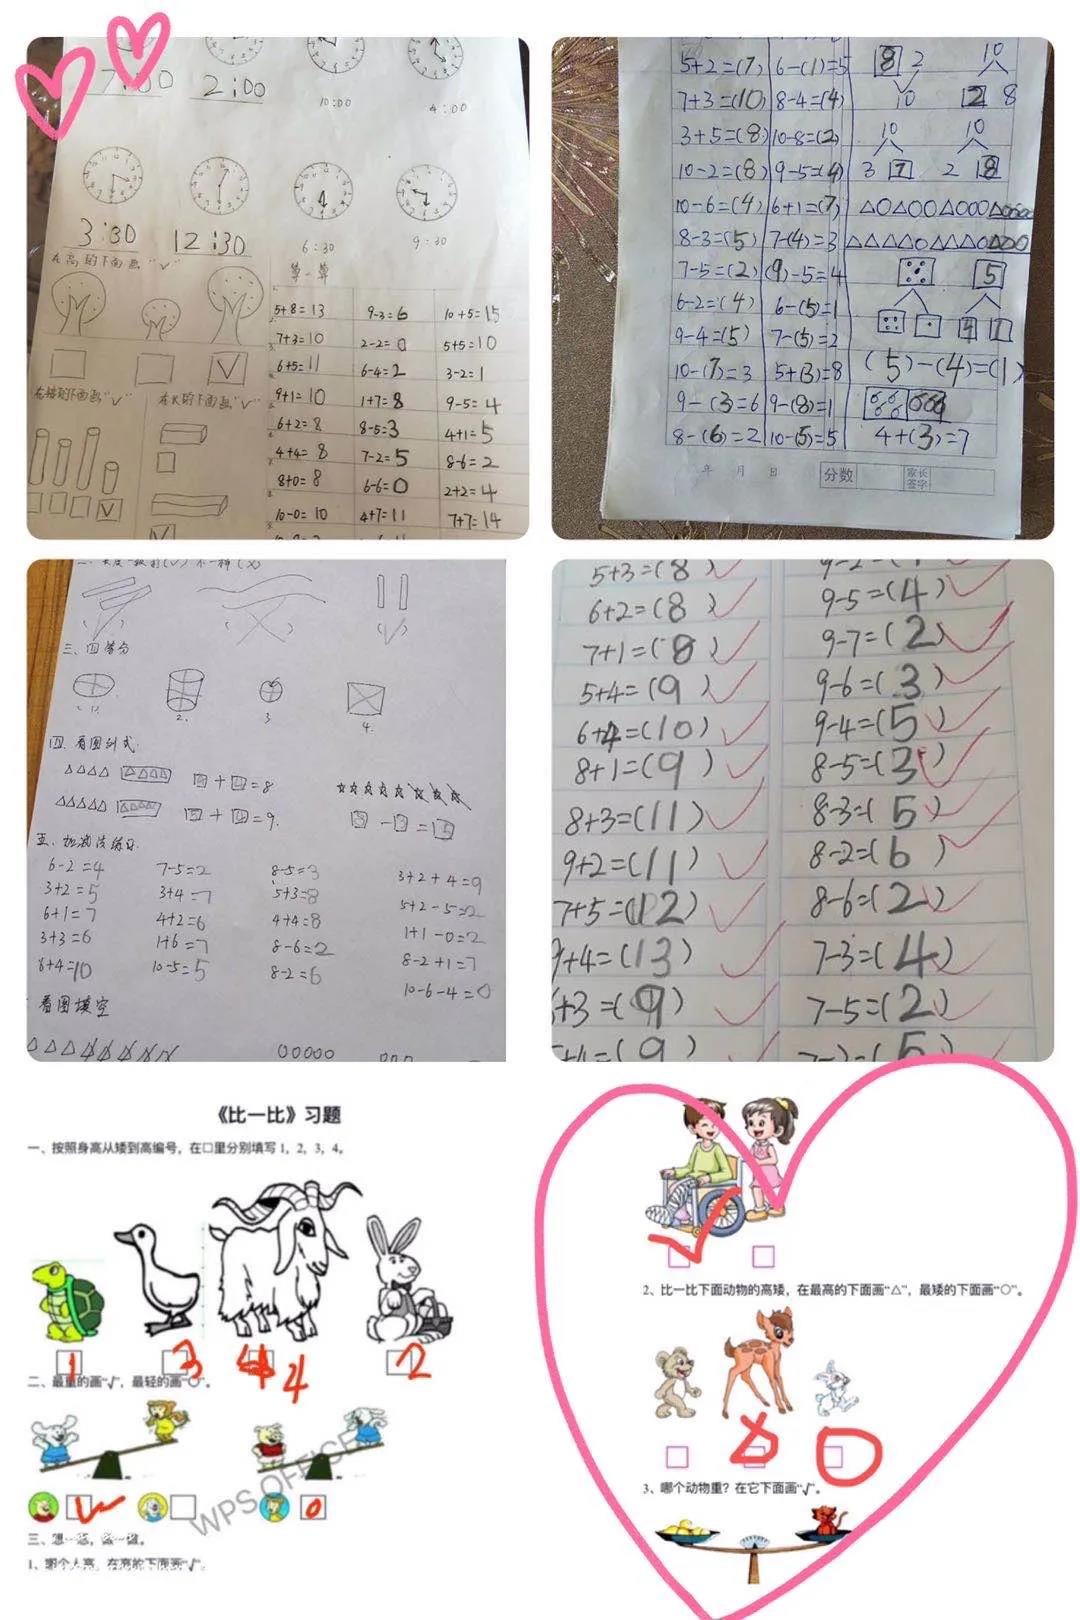 7:00
2:00
10:00
4:00
3:30
12:30
6:30
9:30
在高的下面画"√"
第一单
5+8=13
9-3=6
10+5=15
7+3=10
2-2=0
5+5=10
6+5=11
6-4=2
3-2=1
在矮的下面画"√"
在长的下面画"√"
9+1=10
1+7=8
9-5=4
6+2=8
8-5=3
4+1=5
4+4=8
7-2=5
8-6=2
8+0=8
6-6=0
2+2=4
10-0=10
4+7=11
7+7=14
5+2=(7)
6-(1)=5
8 2
10
10
2 8
7+3=(10)
8-4=(4)
3+5=(8)
10-8=(2)
10
10
10-2=(8)
9-5=(4)
3 7
2 8
10-6=(4)
6+1=(7)
△○△○○△○○○△○○○○
8-3=(5)
7-(4)=3
7-5=(2)
(9)-5=4
5
6-2=(4)
6-(5)=1
4 1
9-4=(5)
7-(5)=2
10-(7)=3
5+(3)=8
(5)-(4)=(1)
9-(3)=6
9-(8)=1
8-(6)=2
10-(5)=5
4+(3)=7
年 月 日
分数
家长
签字
三、四等分
1.
2.
3
4.
四. 看图列式
+ =8
+ =9.
五. 加减法练习
6-2=4
7-5=2
8-5=3
3+2+4=9
3+2=5
3+4=7
5+3=8
5+2-5=2
6+1=7
4+2=6
4+4=8
1+1-0=2
3+3=6
1+6=7
8-6=2
8-2+1=7
6+4=10
10-5=5
8-2=6
10-6-4=0
看图填空
5+3=(8)
6+2=(8)
9-5=(4)
7+1=(8)
9-7=(2)
5+4=(9)
9-6=(3)
6+4=(10)
9-4=(5)
8+1=(9)
8-5=(3)
8+3=(11)
8-3=(5)
9+2=(11)
8-2=(6)
7+5=(12)
8-6=(2)
9+4=(13)
7-3=(4)
+3=(9)
7-5=(2)
《比一比》习题
一、按照身高从矮到高编号，在□里分别填写 1，2，3，4。
1
3
4
4
2
二、最重的画"√"，最轻的画"○"。
WPS OFFICE
三、想一想，画一画。
1、哪个人高，在高的下面画"√"。
2、比一比下面动物的高矮，在最高的下面画"△"，最矮的下面画"○"。
3、哪个动物重？在它下面画"√"。